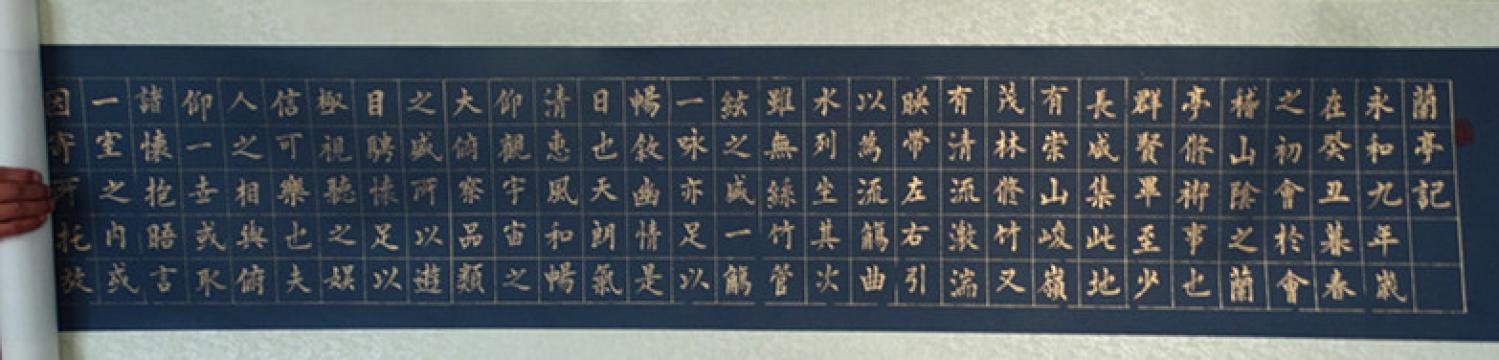 蘭亭記
永和九年歲
在癸丑暮春
之初會於會
稽山陰之蘭
亭脩禊事也
群賢畢至少
長咸集此地
有崇山峻嶺
茂林脩竹又
有清流激湍
暎帶左右引
以為流觴曲
水列坐其次
雖無絲竹管
絃之盛一觴
一咏亦足以
暢敘幽情是
日也天朗氣
清惠風和暢
仰觀宇宙之
大俯察品類
之盛所以遊
目騁懷足以
極視聽之娛
信可樂也夫
人之相與俯
仰一世或取
諸懷抱晤言
一室之內或
因寄所托放